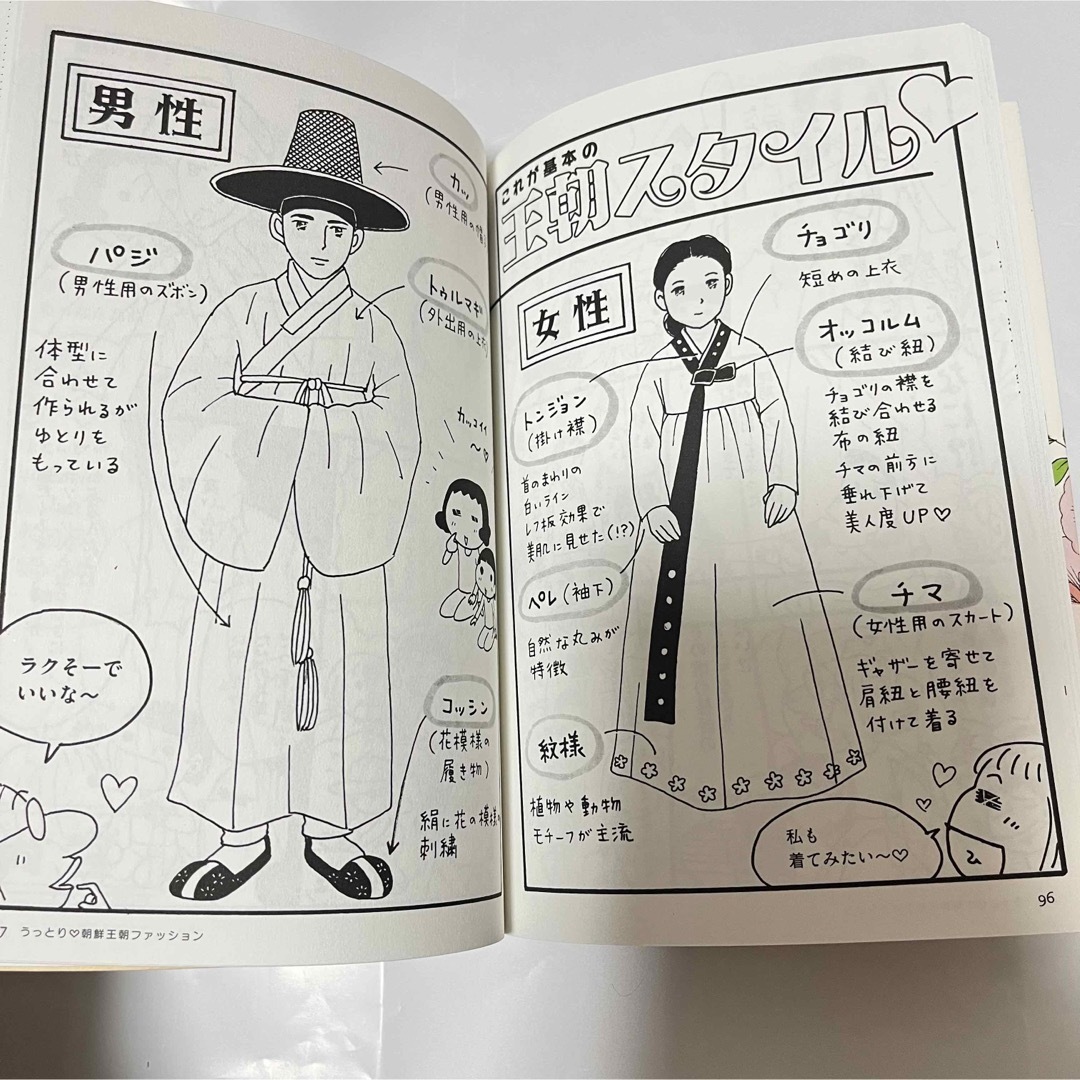 これが基本の
王朝スタイル
女性
チョゴリ
短めの上衣
オッコルム
(結び紐)
チョゴリの襟を
結び合わせる
布の紐
チマの前方に
垂れ下げて
美人度UP♡
チマ
(女性用のスカート)
ギャザーを寄せて
肩紐と腰紐を
付けて着る
トンジョン
(掛け襟)
首のまわりの
白いライン
レフ板効果で
美肌に見せた(!?)
ペレ(袖下)
自然な丸みが
特徴
紋様
植物や動物
モチーフが主流
私も
着てみたい〜♡
96
男性
カッ
(男性用の
トゥルマギ
(外出用の上衣)
パジ
(男性用のズボン)
体型に
合わせて
作られるが
ゆとりを
もっている
カッコイイ
〜♡
コッシン
(花模様の
履き物)
絹に花の模様の
刺繍
ラクそーで
いいな〜
7 うっとり♡朝鮮王朝ファッション